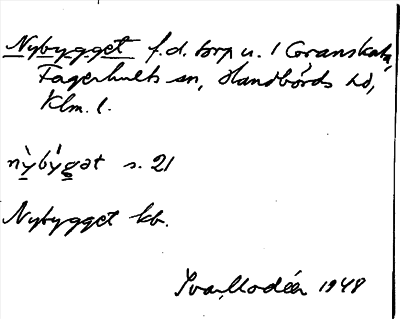 Nybygget f.d. torp u. 1 Granskulla,
Fagerhults sn, Handbörds hd,
Klm. l.
nỳbýgət s. 21
Nybygget kb.
Ivar Modéer 1948